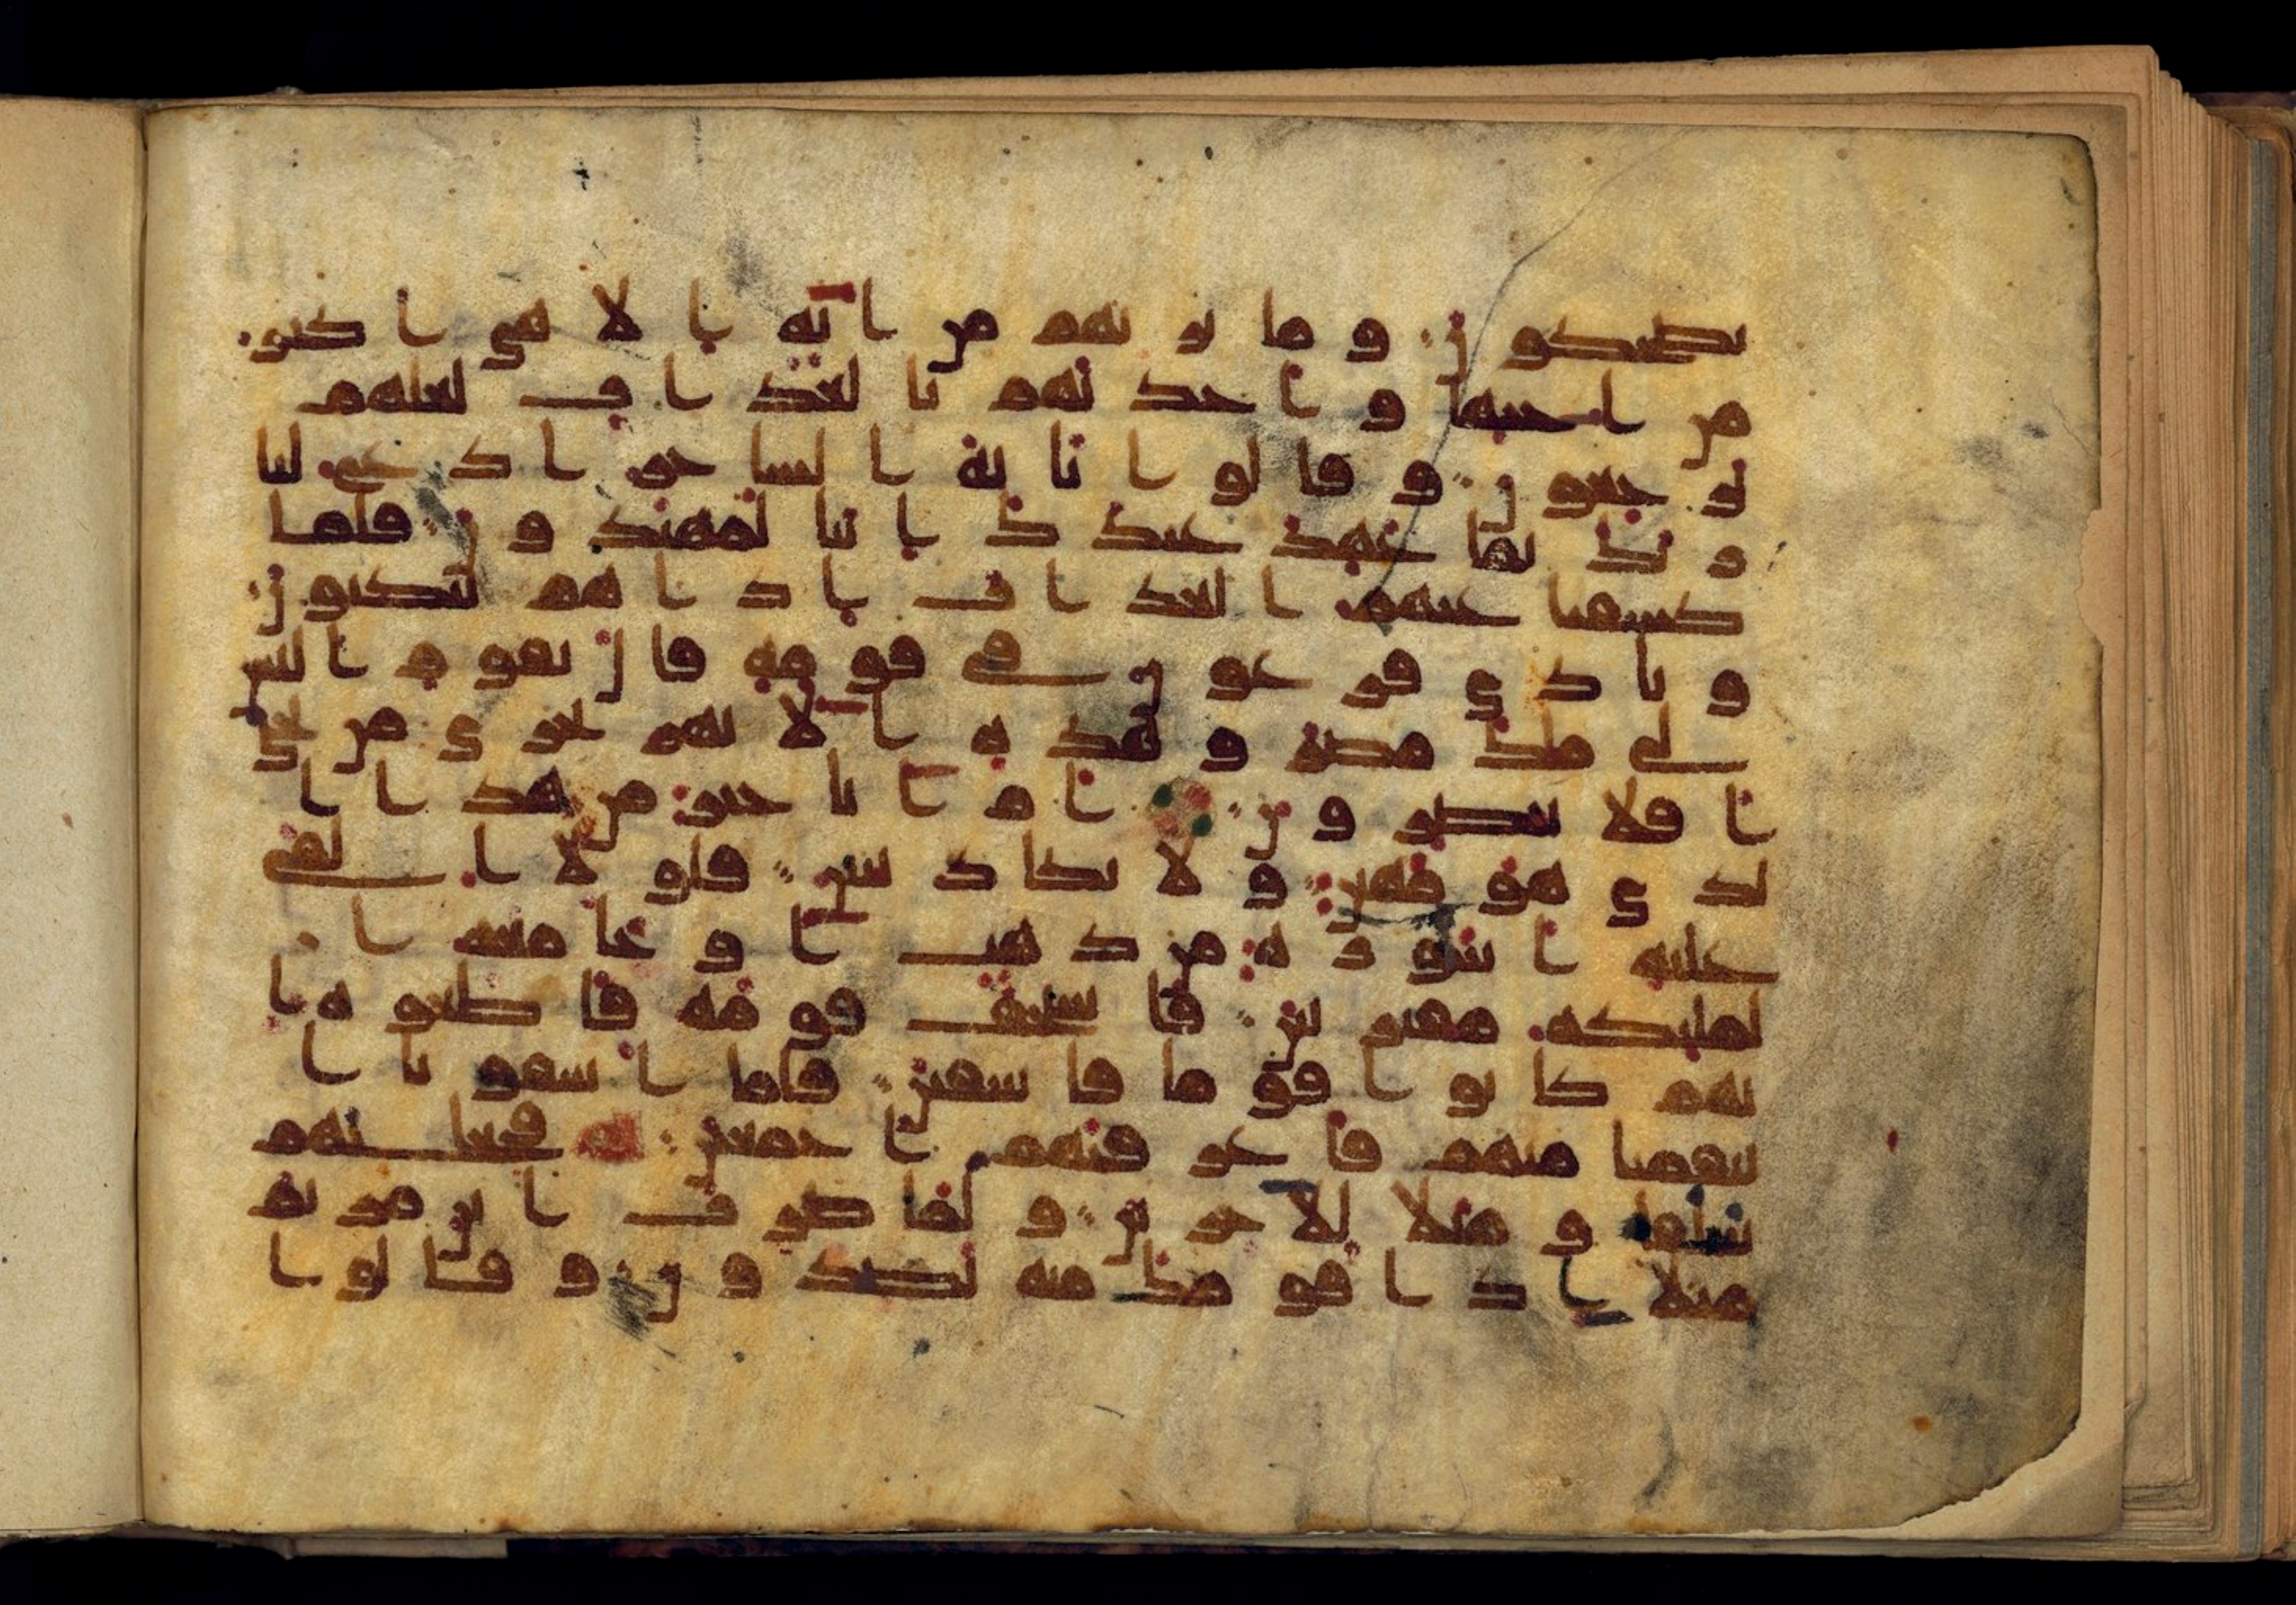 يضحكون وما نريهم من اية الا هي اكبر
من اختها واخذنهم بالعذاب لعلهم
يرجعون وقالوا يايه الساحر ادع لنا
ربك بما عهد عندك اننا لمهتدون فلما
كشفنا عنهم العذاب اذا هم ينكثون
ونادى فرعون في قومه قال يقوم اليس
لي ملك مصر وهذه الانهر تجري من تحتي
افلا تبصرون ام انا خير من هذا ا
لذي هو مهين ولا يكاد يبين فلولا القي
عليه اسورة من ذهب او جا معه ا
لمليكة مقترنين فاستخف قومه فاطعوه ا
نهم كانوا قوما فاسقين فلما اسفونا ا
نتقمنا منهم فاغرقنهم اجمعين فجعلنهم
سلفا ومثلا للاخرين ولما ضرب ابن مريم
مثلا اذا قومك منه يصدون وقالوا ا